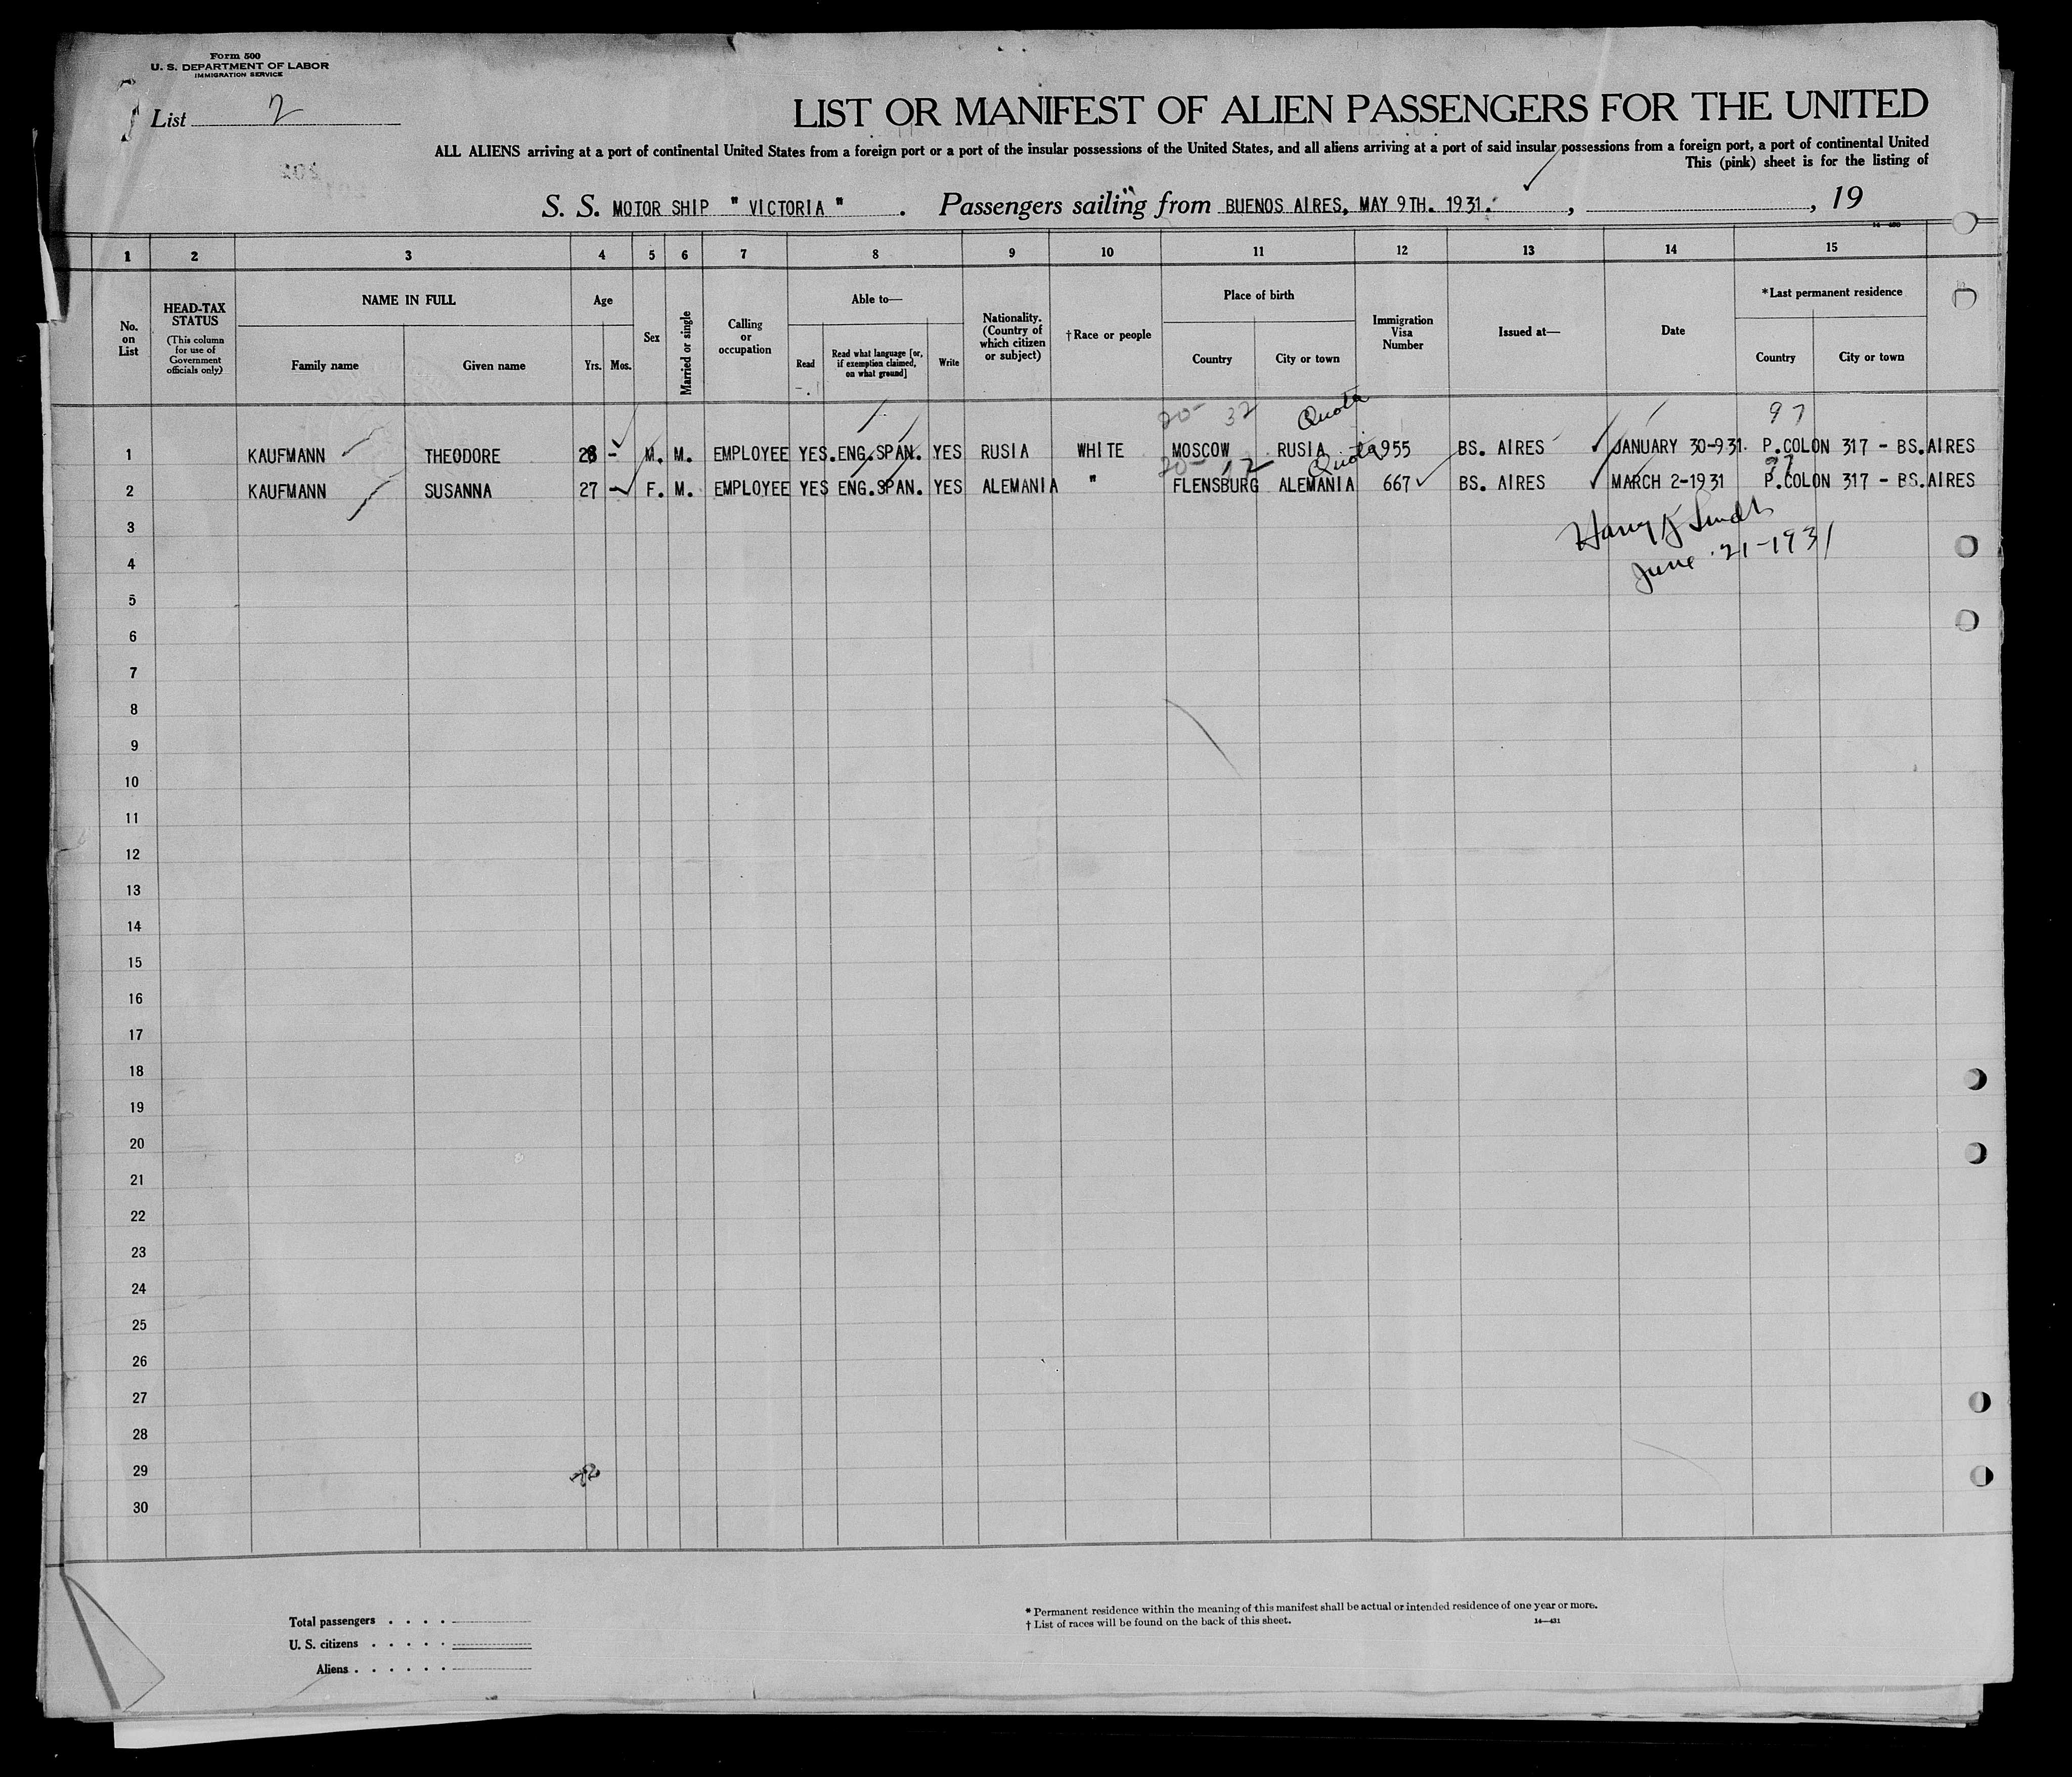 Form 500
U. S. DEPARTMENT OF LABOR
IMMIGRATION SERVICE
List 2
LIST OR MANIFEST OF ALIEN PASSENGERS FOR THE UNITED
ALL ALIENS arriving at a port of continental United States from a foreign port or a port of the insular possessions of the United States, and all aliens arriving at a port of said insular possessions from a foreign port, a port of continental United
This (pink) sheet is for the listing of
S. S. MOTOR SHIP " VICTORIA " . Passengers sailing from BUENOS AIRES, MAY 9TH. 1931. , , 19
1 2 3 4 5 6 7 8 9 10 11 12 13 14 15
No. on List
HEAD-TAX STATUS
(This column for use of Government officials only)
NAME IN FULL
Family name Given name
Age
Yrs. Mos.
Sex
Married or single
Calling or occupation
Able to—
Read
Read what language [or, if exemption claimed, on what ground]
Write
Nationality. (Country of which citizen or subject)
†Race or people
Place of birth
Country City or town
Immigration Visa Number
Issued at—
Date
*Last permanent residence
Country City or town
20- 32 Quota 97
1 KAUFMANN THEODORE 28 - M. M. EMPLOYEE YES. ENG.SPAN. YES RUSIA WHITE MOSCOW RUSIA 955 BS. AIRES JANUARY 30-931. P.COLON 317 - BS.AIRES
20- 12 Quota 97
2 KAUFMANN SUSANNA 27 - F. M. EMPLOYEE YES ENG.SPAN. YES ALEMANIA " FLENSBURG ALEMANIA 667 BS. AIRES MARCH 2-1931 P.COLON 317 - BS.AIRES
3
Harry
4
June 21-1931
5
6
7
8
9
10
11
12
13
14
15
16
17
18
19
20
21
22
23
24
25
26
27
28
29
30
Total passengers . . . .
U. S. citizens . . . . .
Aliens . . . . . .
* Permanent residence within the meaning of this manifest shall be actual or intended residence of one year or more.
† List of races will be found on the back of this sheet.
14—431